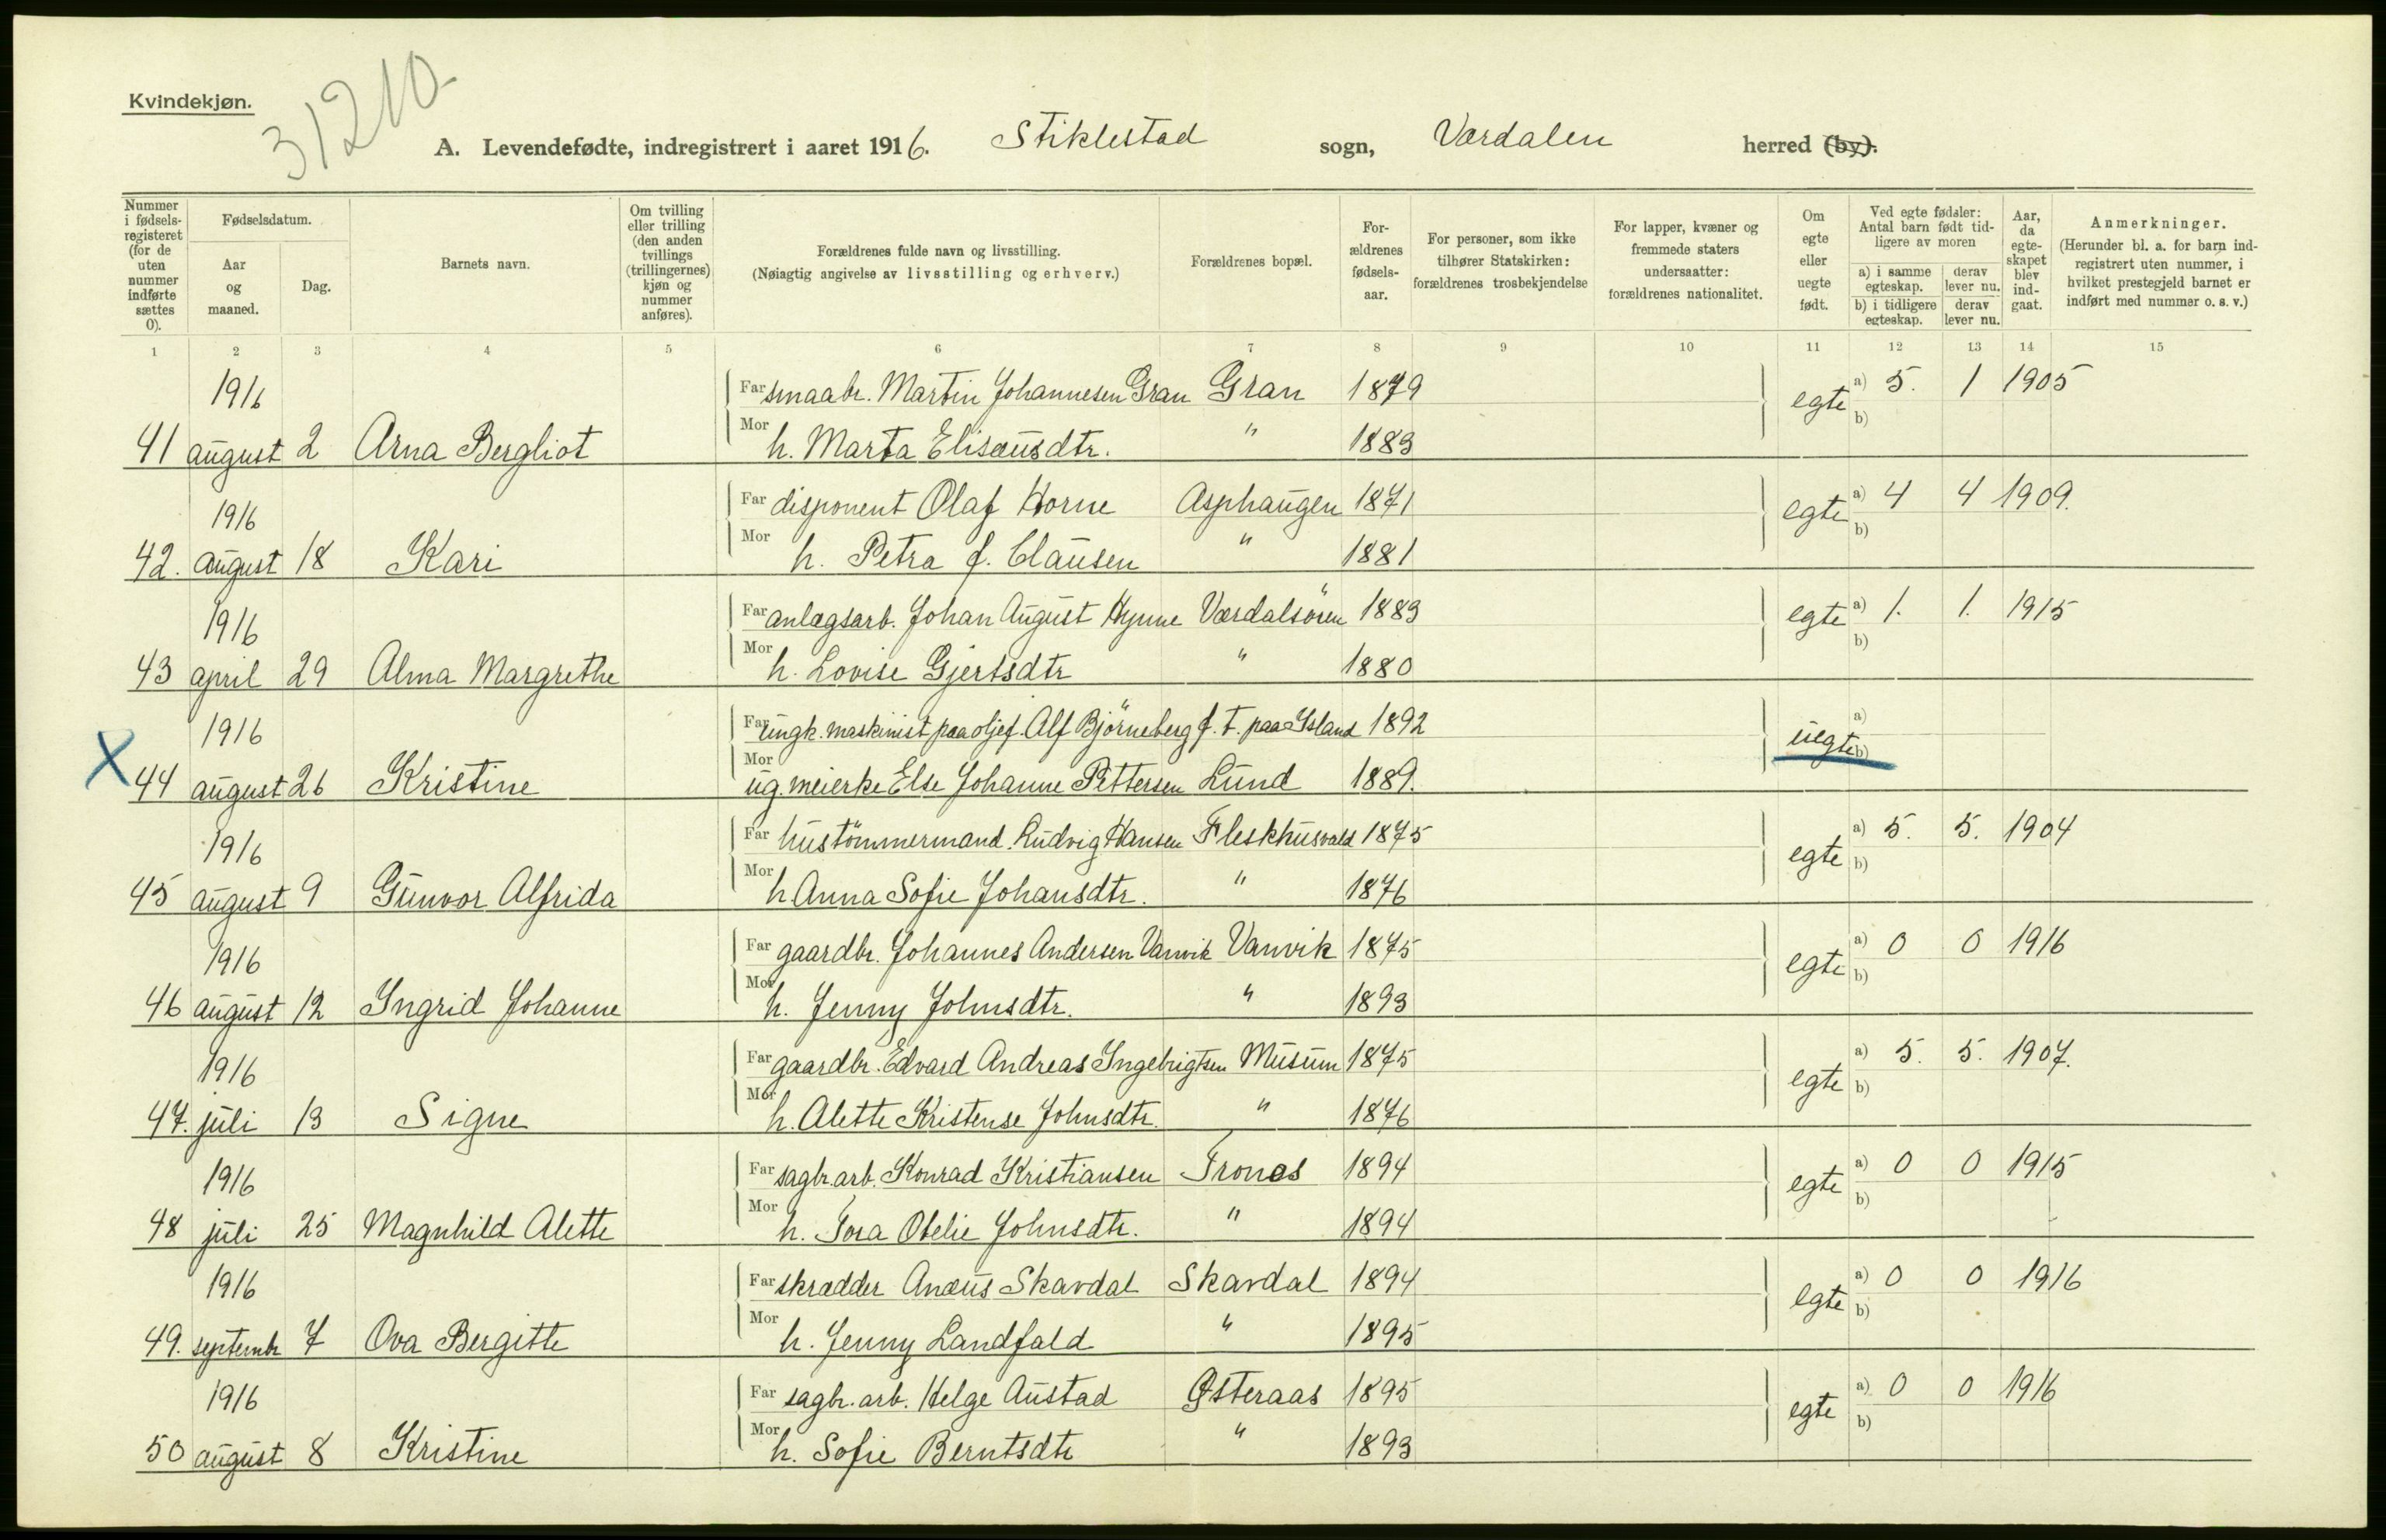 Kvindekjøn.
31210
A. Levendefødte, indregistrert i aaret 1916. Stiklestad sogn, Værdalen herred (by).
Nummer i fødsels-registeret (for de uten nummer indførte sættes 0).
Fødselsdatum.
Aar og maaned.
Dag.
Barnets navn.
Om tvilling eller trilling (den anden tvillings (trillingernes) kjøn og nummer anføres).
Forældrenes fulde navn og livsstilling.
(Nøiagtig angivelse av livsstilling og erhverv.)
Forældrenes bopæl.
For-ældrenes fødsels-aar.
For personer, som ikke tilhører Statskirken: forældrenes trosbekjendelse
For lapper, kvæner og fremmede staters undersaatter: forældrenes nationalitet.
Om egte eller uegte født.
Ved egte fødsler: Antal barn født tid-ligere av moren
a) i samme egteskap. derav lever nu.
b) i tidligere egteskap. derav lever nu.
Aar, da egte-skapet blev ind-gaat.
Anmerkninger.
(Herunder bl. a. for barn ind-registrert uten nummer, i hvilket prestegjeld barnet er indført med nummer o. s. v.)
1 2 3 4 5 6 7 8 9 10 11 12 13 14 15
1916 Far smaabr. Martin Johannesen Gran Gran 1879 egte a) 5. 1 1905
41 august 2 Arna Bergliot Mor h. Marta Elisæusdtr. " 1883 b)
1916 Far disponent Olaf Horne Asphaugen 1871 egte a) 4 4 1909.
42. august 18 Kari Mor h. Petra f. Clausen " 1881 b)
1916 Far anlægsarb. Johan August Hynne Værdalsören 1883 egte a) 1. 1. 1915
43 april 29 Alma Margrethe Mor h. Lovise Gjertsdtr " 1880 b)
1916 Far ungk. maskinist paa oljef. Alf Björneberg f. t. paa Island 1892 uegte a)
X 44 august 26 Kristine Mor ug. meierske Else Johanne Pettersen Lund 1889. b)
1916 Far hustömmermand. Ludvig Hansen Fleskhusvald 1875 egte a) 5. 5. 1904
45 august 9 Gunvor Alfrida Mor h Anna Sofie Johansdtr. " 1876 b)
1916 Far gaardbr. Johannes Andersen Vanvik Vanvik 1875 egte a) 0 0 1916
46 august 12 Ingrid Johanne Mor h. Jenny Johnsdtr. " 1893 b)
1916 Far gaardbr. Edvard Andreas Ingebrigtsen Musum 1875 egte a) 5. 5. 1907.
47. juli 13 Signe Mor h. Alette Kristense Johnsdtr. " 1876 b)
1916 Far sagbr. arb. Konrad Kristiansen Trones 1894 egte a) 0 0 1915
48 juli 25 Magnhild Alette Mor h. Tora Otelie Johnsdtr. " 1894 b)
1916 Far skrædder Anæus Skavdal Skavdal 1894 egte a) 0 0 1916
49. septembr 7 Ova Bergitte Mor h. Jenny Landfald " 1895 b)
1916 Far sagbr. arb. Helge Austad Østeraas 1895 egte a) 0 0 1916
50 august 8 Kristine Mor h. Sofie Berntsdtr " 1893 b)